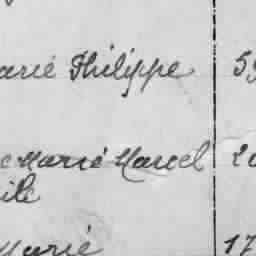 arie Philippe 59
e Marie Marcel 20
ile
Marie 17